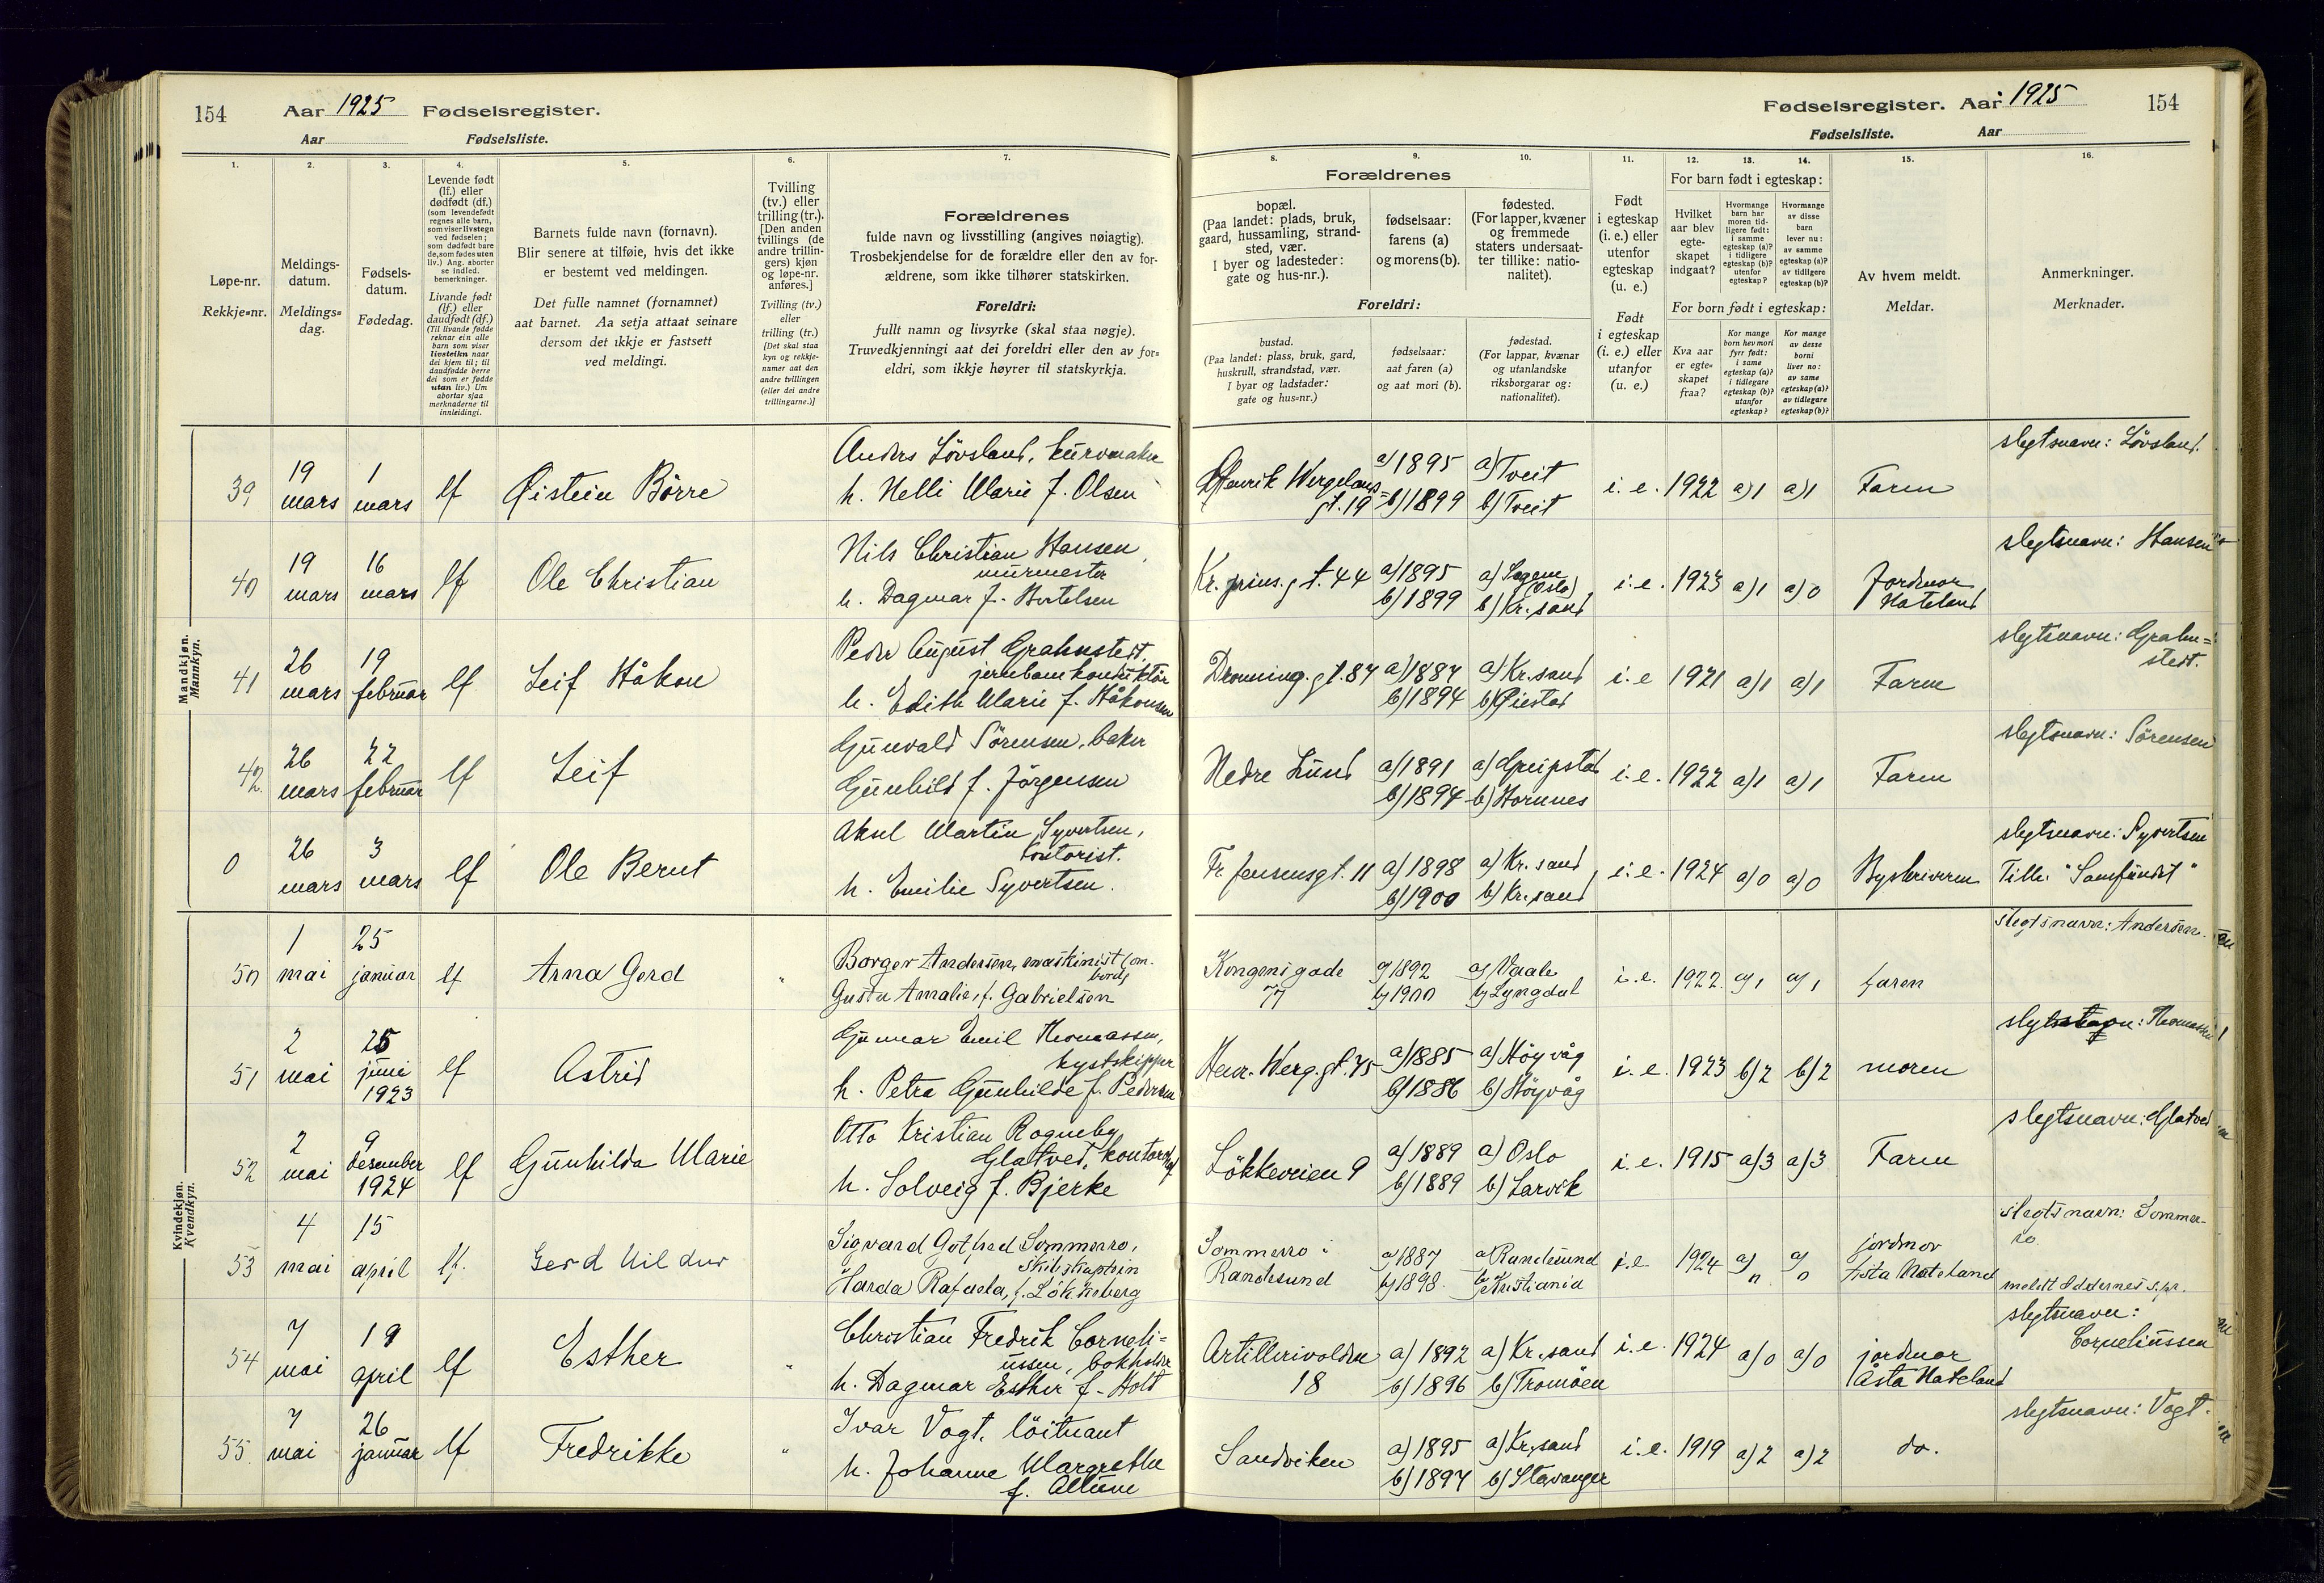 154 Aar 1925 Fødselsregister.
Aar Fødselsliste.
Fødselsregister. Aar 1925 154
Fødselsliste. Aar
1. 2. 3. 4. 5. 6. 7.
Løpe-nr.
Rekkje=nr.
Meldings-
datum.
Meldings=
dag.
Fødsels-
datum.
Fødedag.
Levende født
(lf.) eller
dødfødt (df.)
(som levendefødt
regnes alle barn,
som viser livstegn
ved fødselen;
som dødfødt bare
de, som fødes uten
liv.) Ang. aborter
se indled.
bemerkninger.
Livande født
(lf.) eller
daudfødt (df.)
(Til livande fødde
reknar ein alle
barn som viser
livsteikn naar
dei kjem til; til
daudfødde berre
dei som er fødde
utan liv.) Um
abortar sjaa
merknaderne til
innleidingi.
Barnets fulde navn (fornavn).
Blir senere at tilføie, hvis det ikke
er bestemt ved meldingen.
Det fulle namnet (fornamnet)
aat barnet. Aa setja attaat seinare
dersom det ikkje er fastsett
ved meldingi.
Tvilling
(tv.) eller
trilling (tr.).
[Den anden
tvillings (de
andre trillin-
gers) kjøn
og løpe-nr.
anføres.]
Tvilling (tv.)
eller
trilling (tr.)
[Det skal staa
kyn og rekkje-
numer aat den
andre tvillingen
(eller dei andre
trillingarne.)]
Forældrenes
fulde navn og livsstilling (angives nøiagtig).
Trosbekjendelse for de forældre eller den av for-
ældrene, som ikke tilhører statskirken.
Foreldri:
fullt namn og livsyrke (skal staa nøgje).
Truvedkjenningi aat dei foreldri eller den av for=
eldri, som ikkje høyrer til statskyrkja.
8. 9. 10. 11. 12. 13. 14. 15. 16.
Forældrenes
bopæl.
(Paa landet: plads, bruk,
gaard, hussamling, strand-
sted, vær.
I byer og ladesteder:
gate og hus-nr.).
fødselsaar:
farens (a)
og morens (b).
fødested.
(For lapper, kvæner
og fremmede
staters undersaat-
ter tillike: natio-
nalitet).
Foreldri:
bustad.
(Paa landet: plass, bruk, gard,
huskrull, strandstad, vær.
I byar og ladstader:
gate og hus=nr.)
fødselsaar:
aat faren (a)
og aat mori (b).
fødestad.
(For lappar, kvænar
og utanlandske
riksborgarar og:
nationalitet).
Født
i egteskap
(i. e.) eller
utenfor
egteskap
(u. e.)
Født
i egteskap
(i. e.) eller
utanfor
(u. e.)
For barn født i egteskap:
Hvilket
aar blev
egte-
skapet
indgaat?
Hvormange
barn har
moren tid-
ligere født:
i samme
egteskap (a)?
i tidligere
egteskap (b)?
utenfor
egteskap?
Hvormange
av disse
barn
lever nu:
av samme
egteskap (a)?
av tidligere
egteskap (b)?
For born født i egteskap:
Kva aar
er egte=
skapet
fraa?
Kor mange
born hev mori
fyrr født:
i same
egteskap (a)?
i tidlegare
egteskap (b)?
utanfor
egteskap?
Kor mange
av desse
borni
liver no:
av same
egteskap (a)?
av tidlegare
egteskap (b)?
Av hvem meldt.
Meldar.
Anmerkninger.
Merknader.
Mandkjøn.
Mannkyn.
39 19 mars 1 mars lf Øistein Börre
Anders Lövsland, kurvmaker
h. Nelli Marie f. Olsen
Henrik Wergelands
gt. 19 a) 1895 b) 1899 a) Tveit b) Tveit i. e. 1922 a) 1 a) 1 Faren slegtsnavn: Lövsland.
40 19 mars 16 mars lf Ole Christian
Nils Christian Hansen,
murmester
h. Dagmar f. Bertelsen
Kr. prins. gt. 44 a) 1895 b) 1899 a) Sagene (Oslo) b) Kr. sand i. e. 1923 a) 1 a) 0 Jordmor
Hateland slegtsnavn: Hansen
41 26 mars 19 februar lf Leif Håkon
Peder August Grahnstedt.
jernbanekonduktör
h. Edith Marie f. Håkonsen
Dronning. gt. 87 a) 1887 b) 1894 a) Kr. sand b) Øiestad i. e 1921 a) 1 a) 1 Faren slegtsnavn: Grahn=
stedt.
42. 26 mars 22 februar lf Leif
Gunvald Sörensen, baker
Gunhild f. Jörgensen
Nedre Lund a) 1891 b) 1894 a) Greipstad b) Hornnes i. e. 1922 a) 1 a) 1 Faren slegtsnavn: Sörensen
0 26 mars 3 mars lf Ole Bernt
Aksel Martin Syvertsen,
kontorist.
h. Emilie Syvertsen.
Fr. Jensensgt. 11 a) 1898 b) 1900 a) Kr. sand b) Kr. sand i. e. 1924 a) 0 a) 0 Byskriveren slegtsnavn: Syvertsen
Tilh. "Samfundet"
Kvindekjøn.
Kvendkyn.
50 1 mai 25 januar lf Arna Gerd
Borger Andersen, maskinist (om-
bord)
Gusta Amalie, f. Gabrielsen
Kongensgade
77 a) 1892 b) 1900 a) Vaale b) Lyngdal i. e. 1922 a) 1 a) 1 faren slegtsnavn: Andersen.
51 2 mai 25 juni 1923 lf Astrid
Gunnar Emil Thomassen,
kystskipper
h. Petra Gunhilde f. Pedersen
Henr. Werg. gt. 75 a) 1885 b) 1886 a) Höyvåg b) Höyvåg i. e. 1923 b) 2 b) 2 moren slegtsnavn: Thomassen
52 2 mai 9 desember 1924 lf Gunhilda Marie
Otto Kristian Rogneby
Glatved, kontorchef
h. Solveig f. Bjerke
Lökkeveien 9 a) 1889 b) 1889 a) Oslo b) Larvik i. e. 1915 a) 3 a) 3 Faren slegtsnavn: Glatved
53 4 mai 15 april lf. Gerd
Sigvard Gotfred Sommerro,
skibskaptein
Harda Rafaela, f. Lökkeberg
Sommerro i
Randesund a) 1887 b) 1898. a) Randesund b) Kristiania i. e 1924 a) 0 a) 0 jordmor
Åsta Hateland slegtsnavn: Sommer-
ro.
meldt Oddernes s. pr.
54 7 mai 19 april lf Esther
Christian Fredrik Corneli=
ussen, bokholder
h. Dagmar Esther f. Holt
Artillerivolden
18 a) 1892 b) 1896 a) Kr. sand b) Tromöen i. e. 1924 a) 0 a) 0 jordmor
Åsta Hateland slegtsnavn:
Corneliussen
55. 7 mai 26 januar lf Fredrikke
Ivar Vogt, löitnant
h. Johanne Margrethe
f.
Sandviken a) 1895 b) 1897 a) Kr. sand b) Stavanger i. e. 1919 a) 2 a) 2 do. slegtsnavn: Vogt.